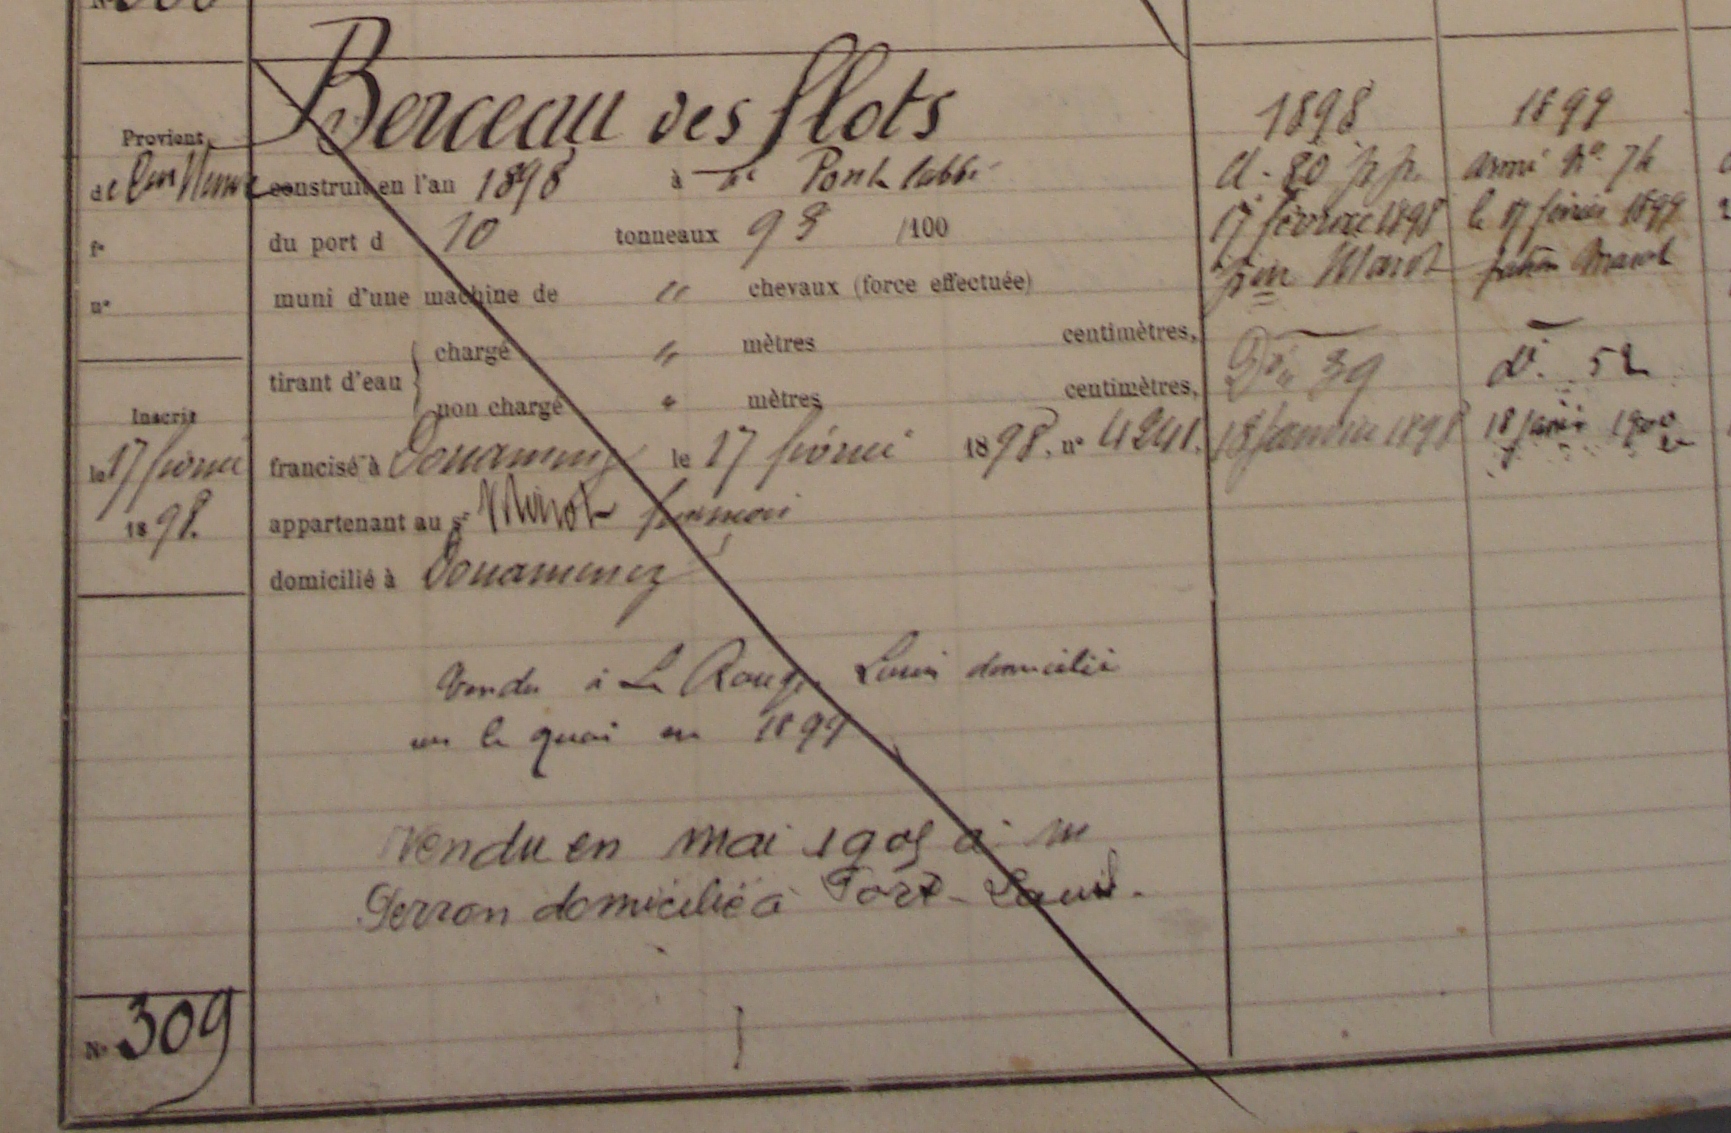 Berceau des flots
Provient
de construit en l'an 1898 à Pont labbé
fº du port d 10 tonneaux 93 /100
nº muni d'une machine de " chevaux (force effectuée)
tirant d'eau
chargé " mètres centimètres,
non chargé " mètres centimètres,
Inscrit
le 17 février
1898.
francisé à Douarnenez le 17 février 1898. nº 4241.
appartenant au sr
domicilié à Douarnenez
Vendu à Le Rouge Louis domicilié
sur le quai en 1899
Vendu en mai 1905 à m
Perron domicilié à Port-Louis.
Nº 309
1898
A. 80
17 février 1898
Dº 39
18 Janvier 1898
1899
armé Nº. 74
le 17 février 1899
patron Marot
D. 52
18 Janvier 1900